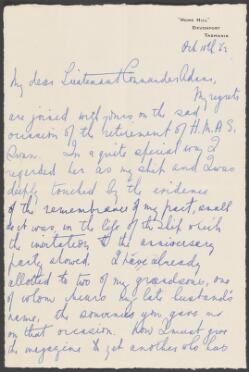 "HOME HILL"
DEVONPORT
TASMANIA
Oct 10th 62
My dear Lieutenant Commander Adams,
My regrets
are joined with yours, on the sad
occasion of the retirement of H.M.A.S.
Swan. In a quite special way I
regarded her as my ship and I was
deeply touched by the evidence
of the remembrance of my part, small
as it was, in the life of the ship which
the invitation to the anniversary
party showed. I have already
allotted to two of my grandsons, one
of whom bears my late husband's
name, the souvenirs you gave me
on that occasion. Now I must give
the magazine to yet another who has